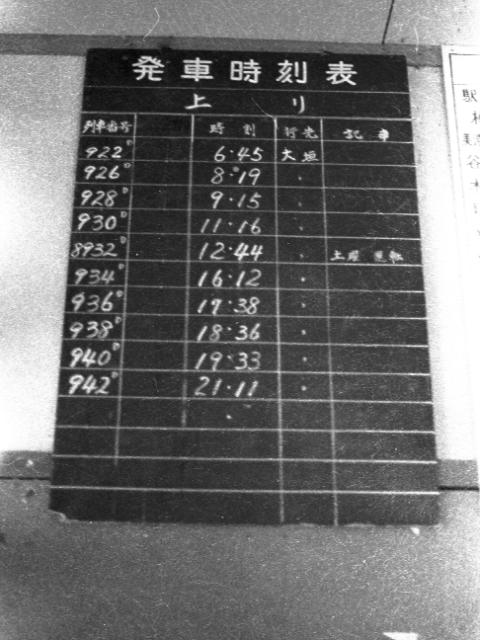 発車時刻表
上り
列車番号 時刻 行先 記事
922D 6・45 大垣
926D 8・19 〃
928D 9・15 〃
930D 11・16 〃
8932D 12・44 〃 土曜運転
934D 16・12 〃
936D 17・38 〃
938D 18・36 〃
940D 19・33 〃
942D 21・11 〃
駅
谷